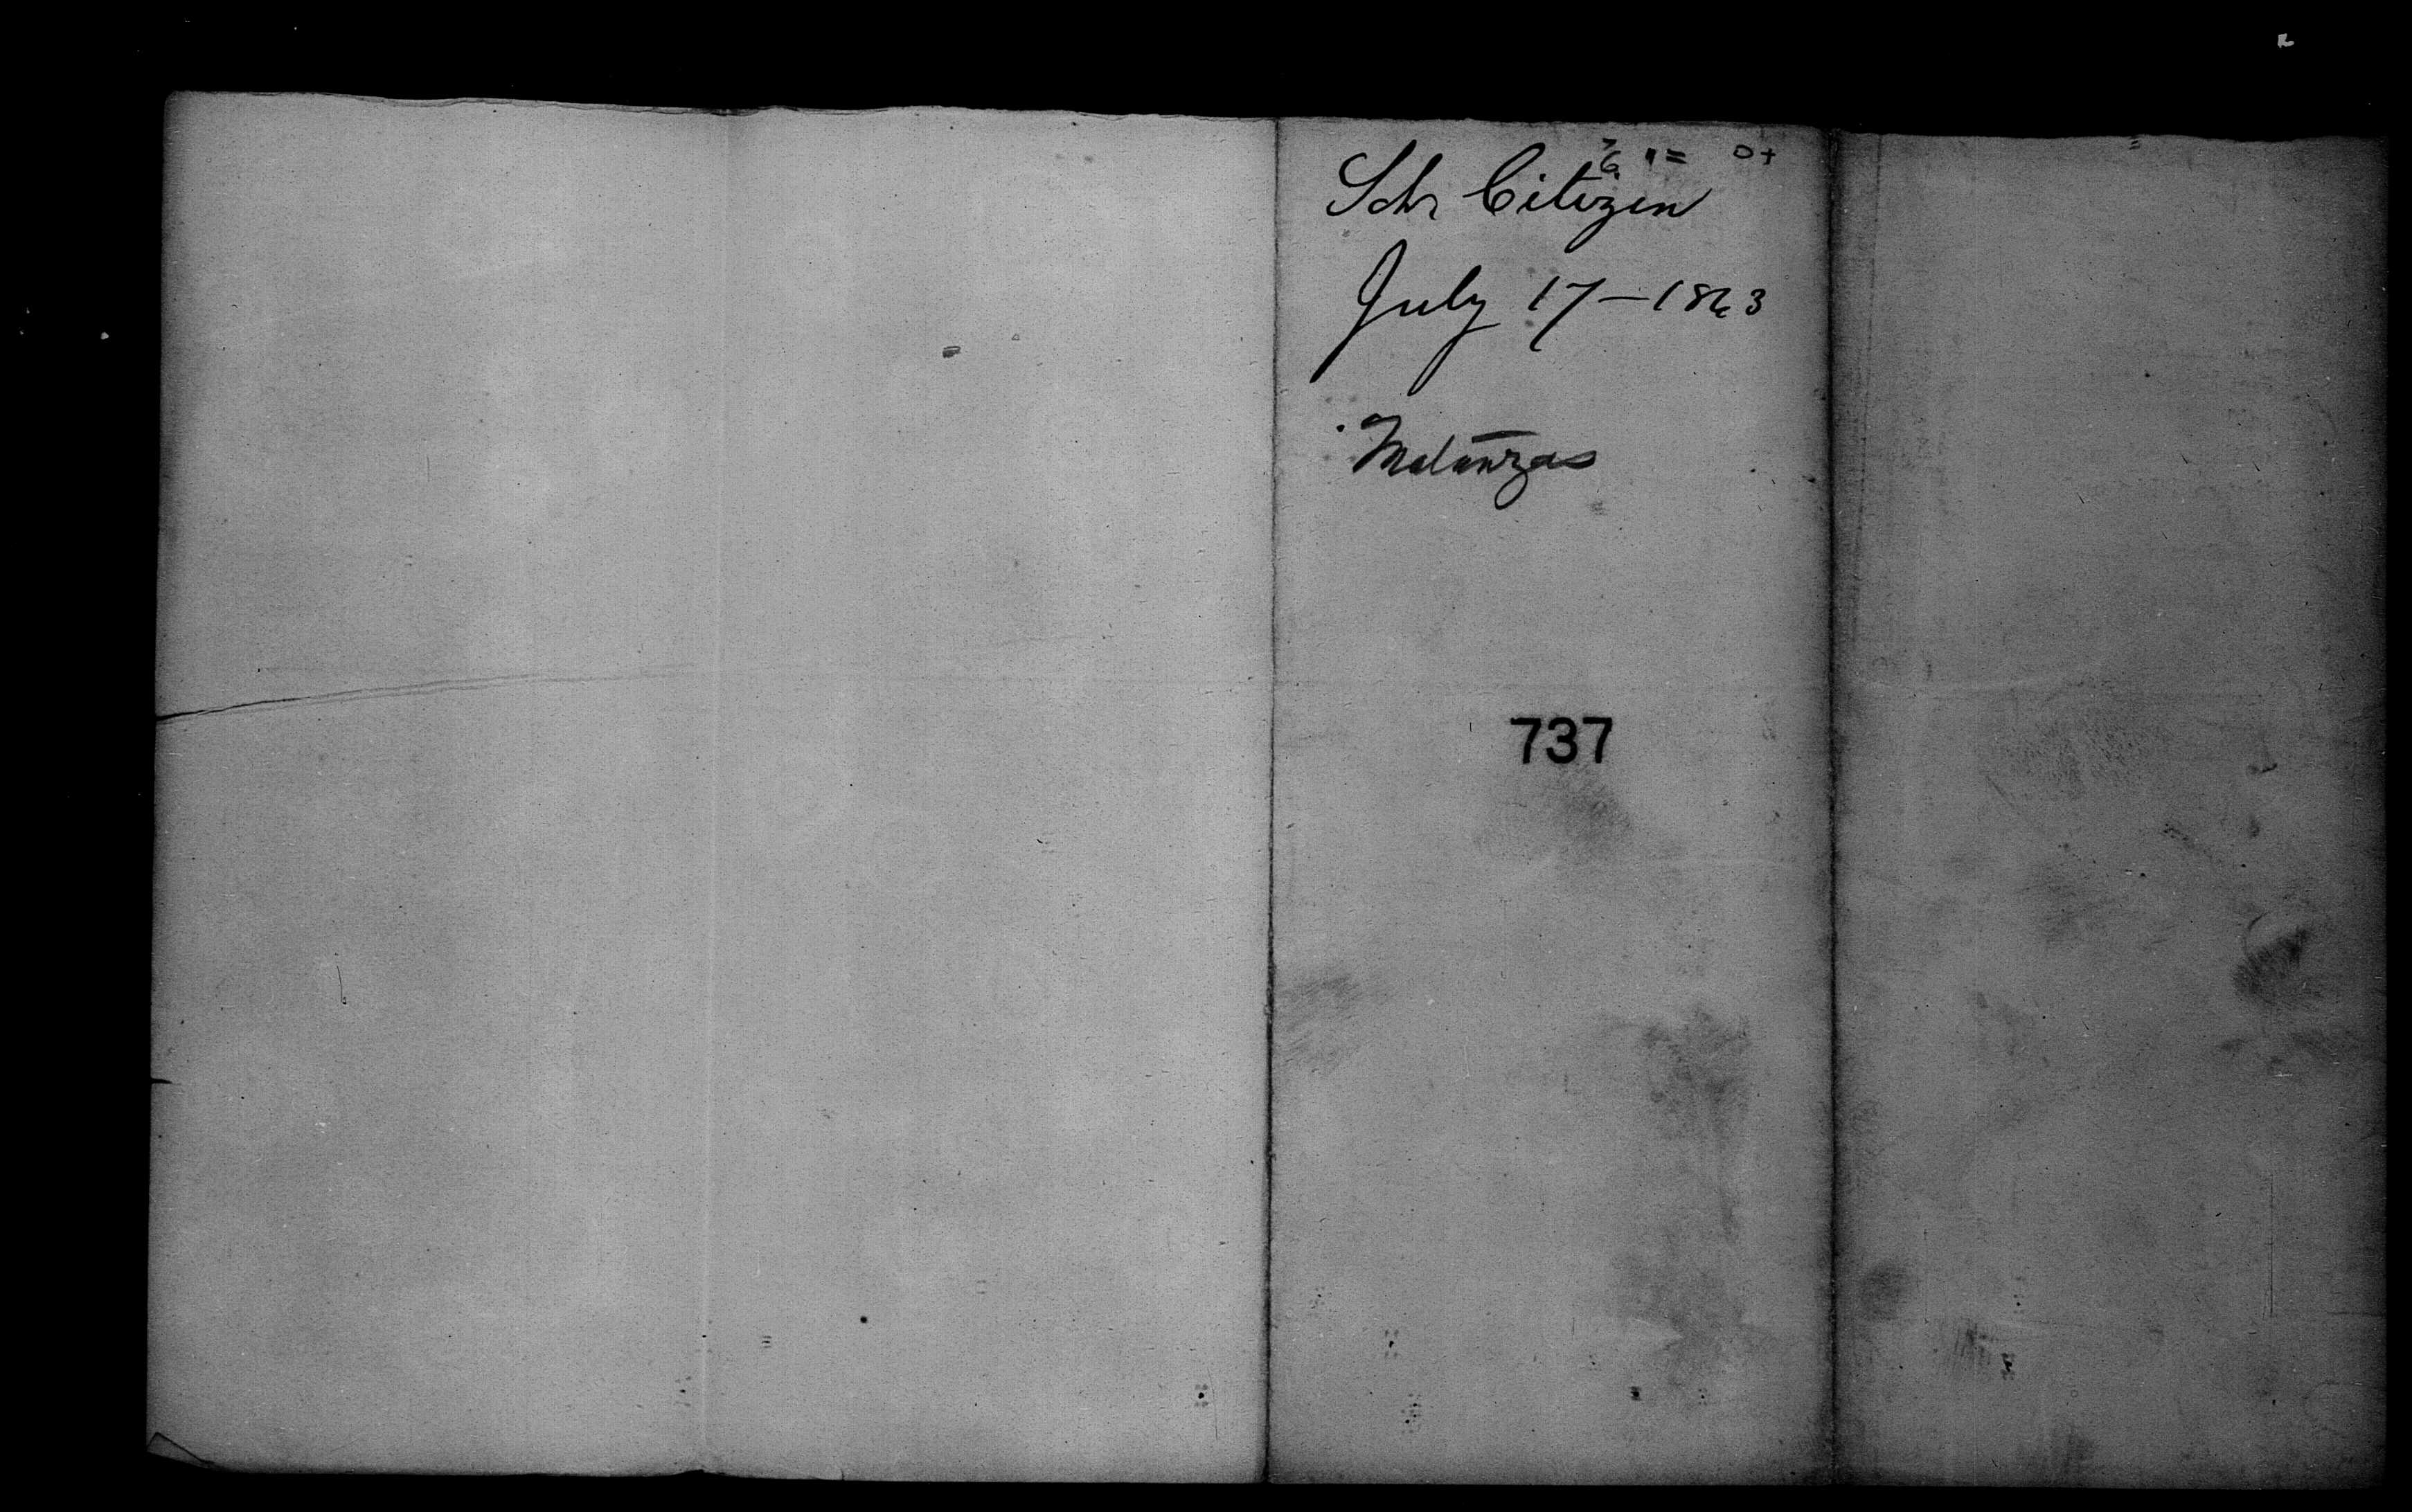 Schr Citizen
July 17—1863
Matanzas
737